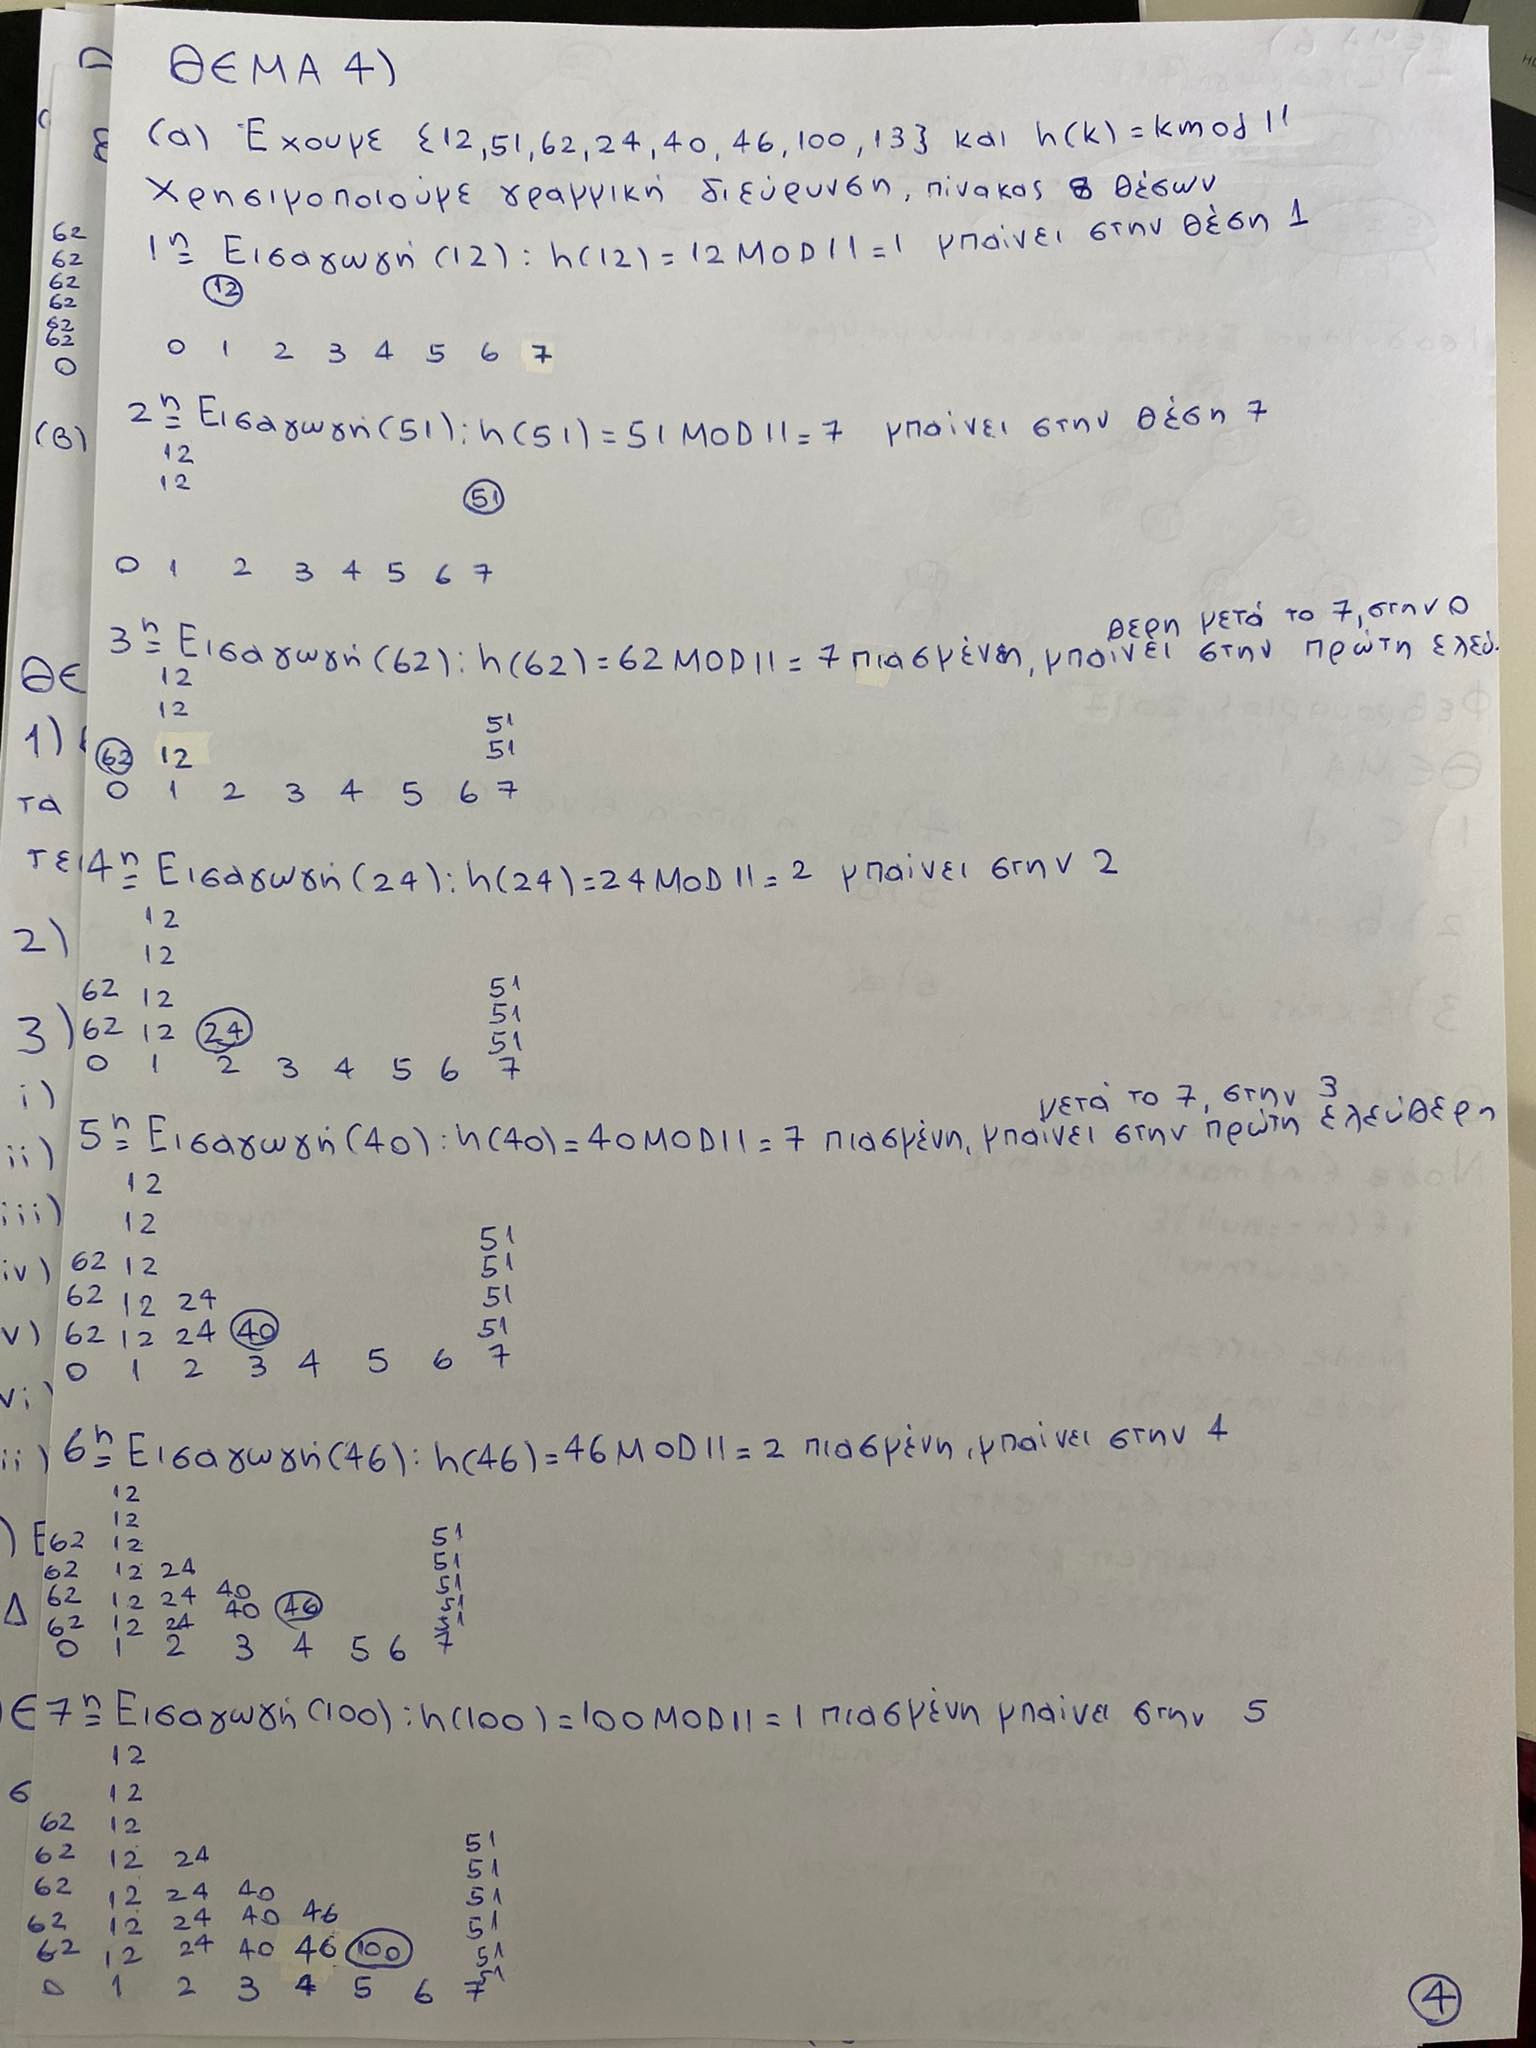 ΘΕΜΑ 4)
(α) Έχουμε {12,51,62,24,40,46,100,13} και h(k)=kmod 11
Χρησιμοποιούμε γραμμική διεύρυνση, πίνακας 8 θέσων
1η Εισαγωγή (12): h(12)=12MOD11=1 μπαίνει στην θέση 1
12
0 1 2 3 4 5 6 7
2η Εισαγωγή(51): h(51)=51MOD11=7 μπαίνει στην θέση 7
12
12 51
0 1 2 3 4 5 6 7
3η Εισαγωγή(62): h(62)=62MOD11=7 πιασμένη, μπαίνει στην πρώτη ελεύ-
θερη μετά το 7, στην 0
12
12 51
62 12 51
0 1 2 3 4 5 6 7
4η Εισαγωγή(24): h(24)=24MOD11=2 μπαίνει στην 2
12
12
62 12 51
51
62 12 24 51
0 1 2 3 4 5 6 7
5η Εισαγωγή(40): h(40)=40MOD11=7 πιασμένη, μπαίνει στην πρώτη ελεύθερη
μετά το 7, στην 3
12
12 51
62 12 51
62 12 24 51
62 12 24 40 51
0 1 2 3 4 5 6 7
6η Εισαγωγή(46): h(46)=46MOD11=2 πιασμένη, μπαίνει στην 4
12
12 51
62 12 51
62 12 24 51
62 12 24 40 51
62 12 24 40 46 51
0 1 2 3 4 5 6 7
7η Εισαγωγή(100): h(100)=100MOD11=1 πιασμένη μπαίνει στην 5
12
12 51
62 12 51
62 12 24 51
62 12 24 40 51
62 12 24 40 46 51
62 12 24 40 46 100 51
0 1 2 3 4 5 6 7
4
62
62
62
62
62
62
0
(Β)
ΘΕ
1)
τα
τει
2)
3)
i)
ii)
iii)
iv)
v)
vi)
ii)
) Ε
Δ
Ε
6